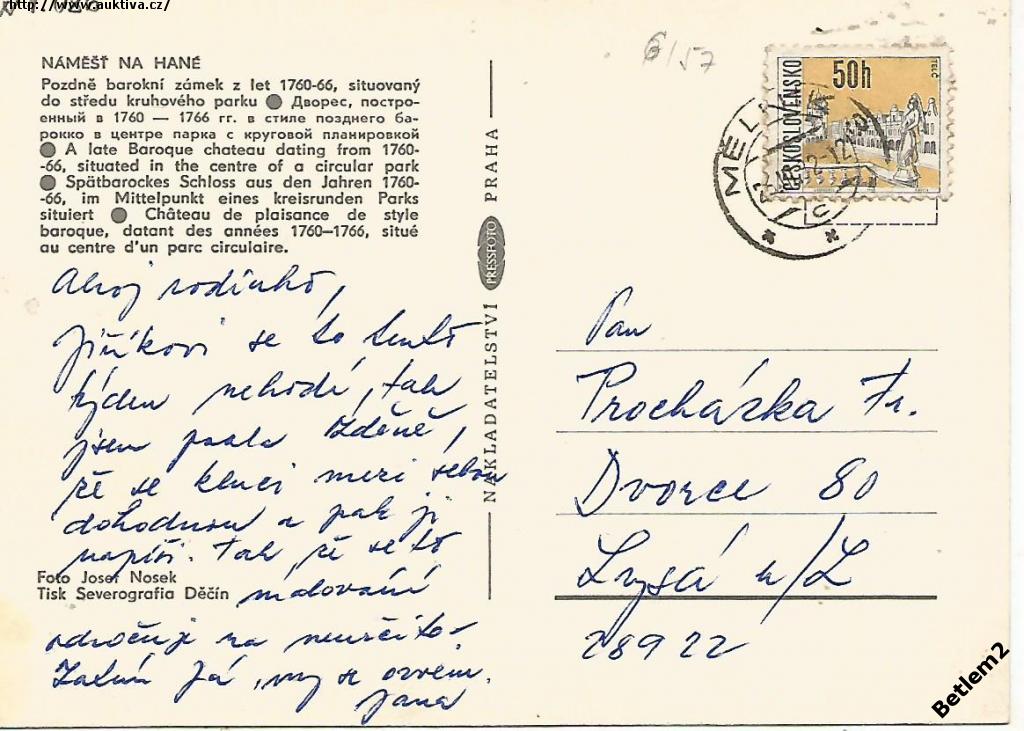 http://www.auktiva.cz/
6/57
NÁMĚŠŤ NA HANÉ
Pozdně barokní zámek z let 1760-66, situovaný
do středu kruhového parku ● Дворец, постро-
енный в 1760 — 1766 гг. в стиле позднего ба-
рокко в центре парка с круговой планировкой
● A late Baroque chateau dating from 1760-
-66, situated in the centre of a circular park
● Spätbarockes Schloss aus den Jahren 1760-
-66, im Mittelpunkt eines kreisrunden Parks
situiert ● Château de plaisance de style
baroque, datant des années 1760–1766, situé
au centre d'un parc circulaire.
Ahoj rodinko,
Jiříkovi se to tento
týden nehodí, tak
jsem psala Zdeně,
že se kluci mezi sebou
dohodnou a pak ji
napíši. Tak že se to
malování
odročuje na neurčito-
Zatím já, my se ozvem.
Jana
Foto Josef Nosek
Tisk Severografia Děčín
NAKLADATELSTVÍ PRESSFOTO PRAHA
ČESKOSLOVENSKO
50h
TELČ
MĚLNÍK
Pan
Procházka Fr.
Dvorce 80
Lysá n/L
289 22
Betlem2